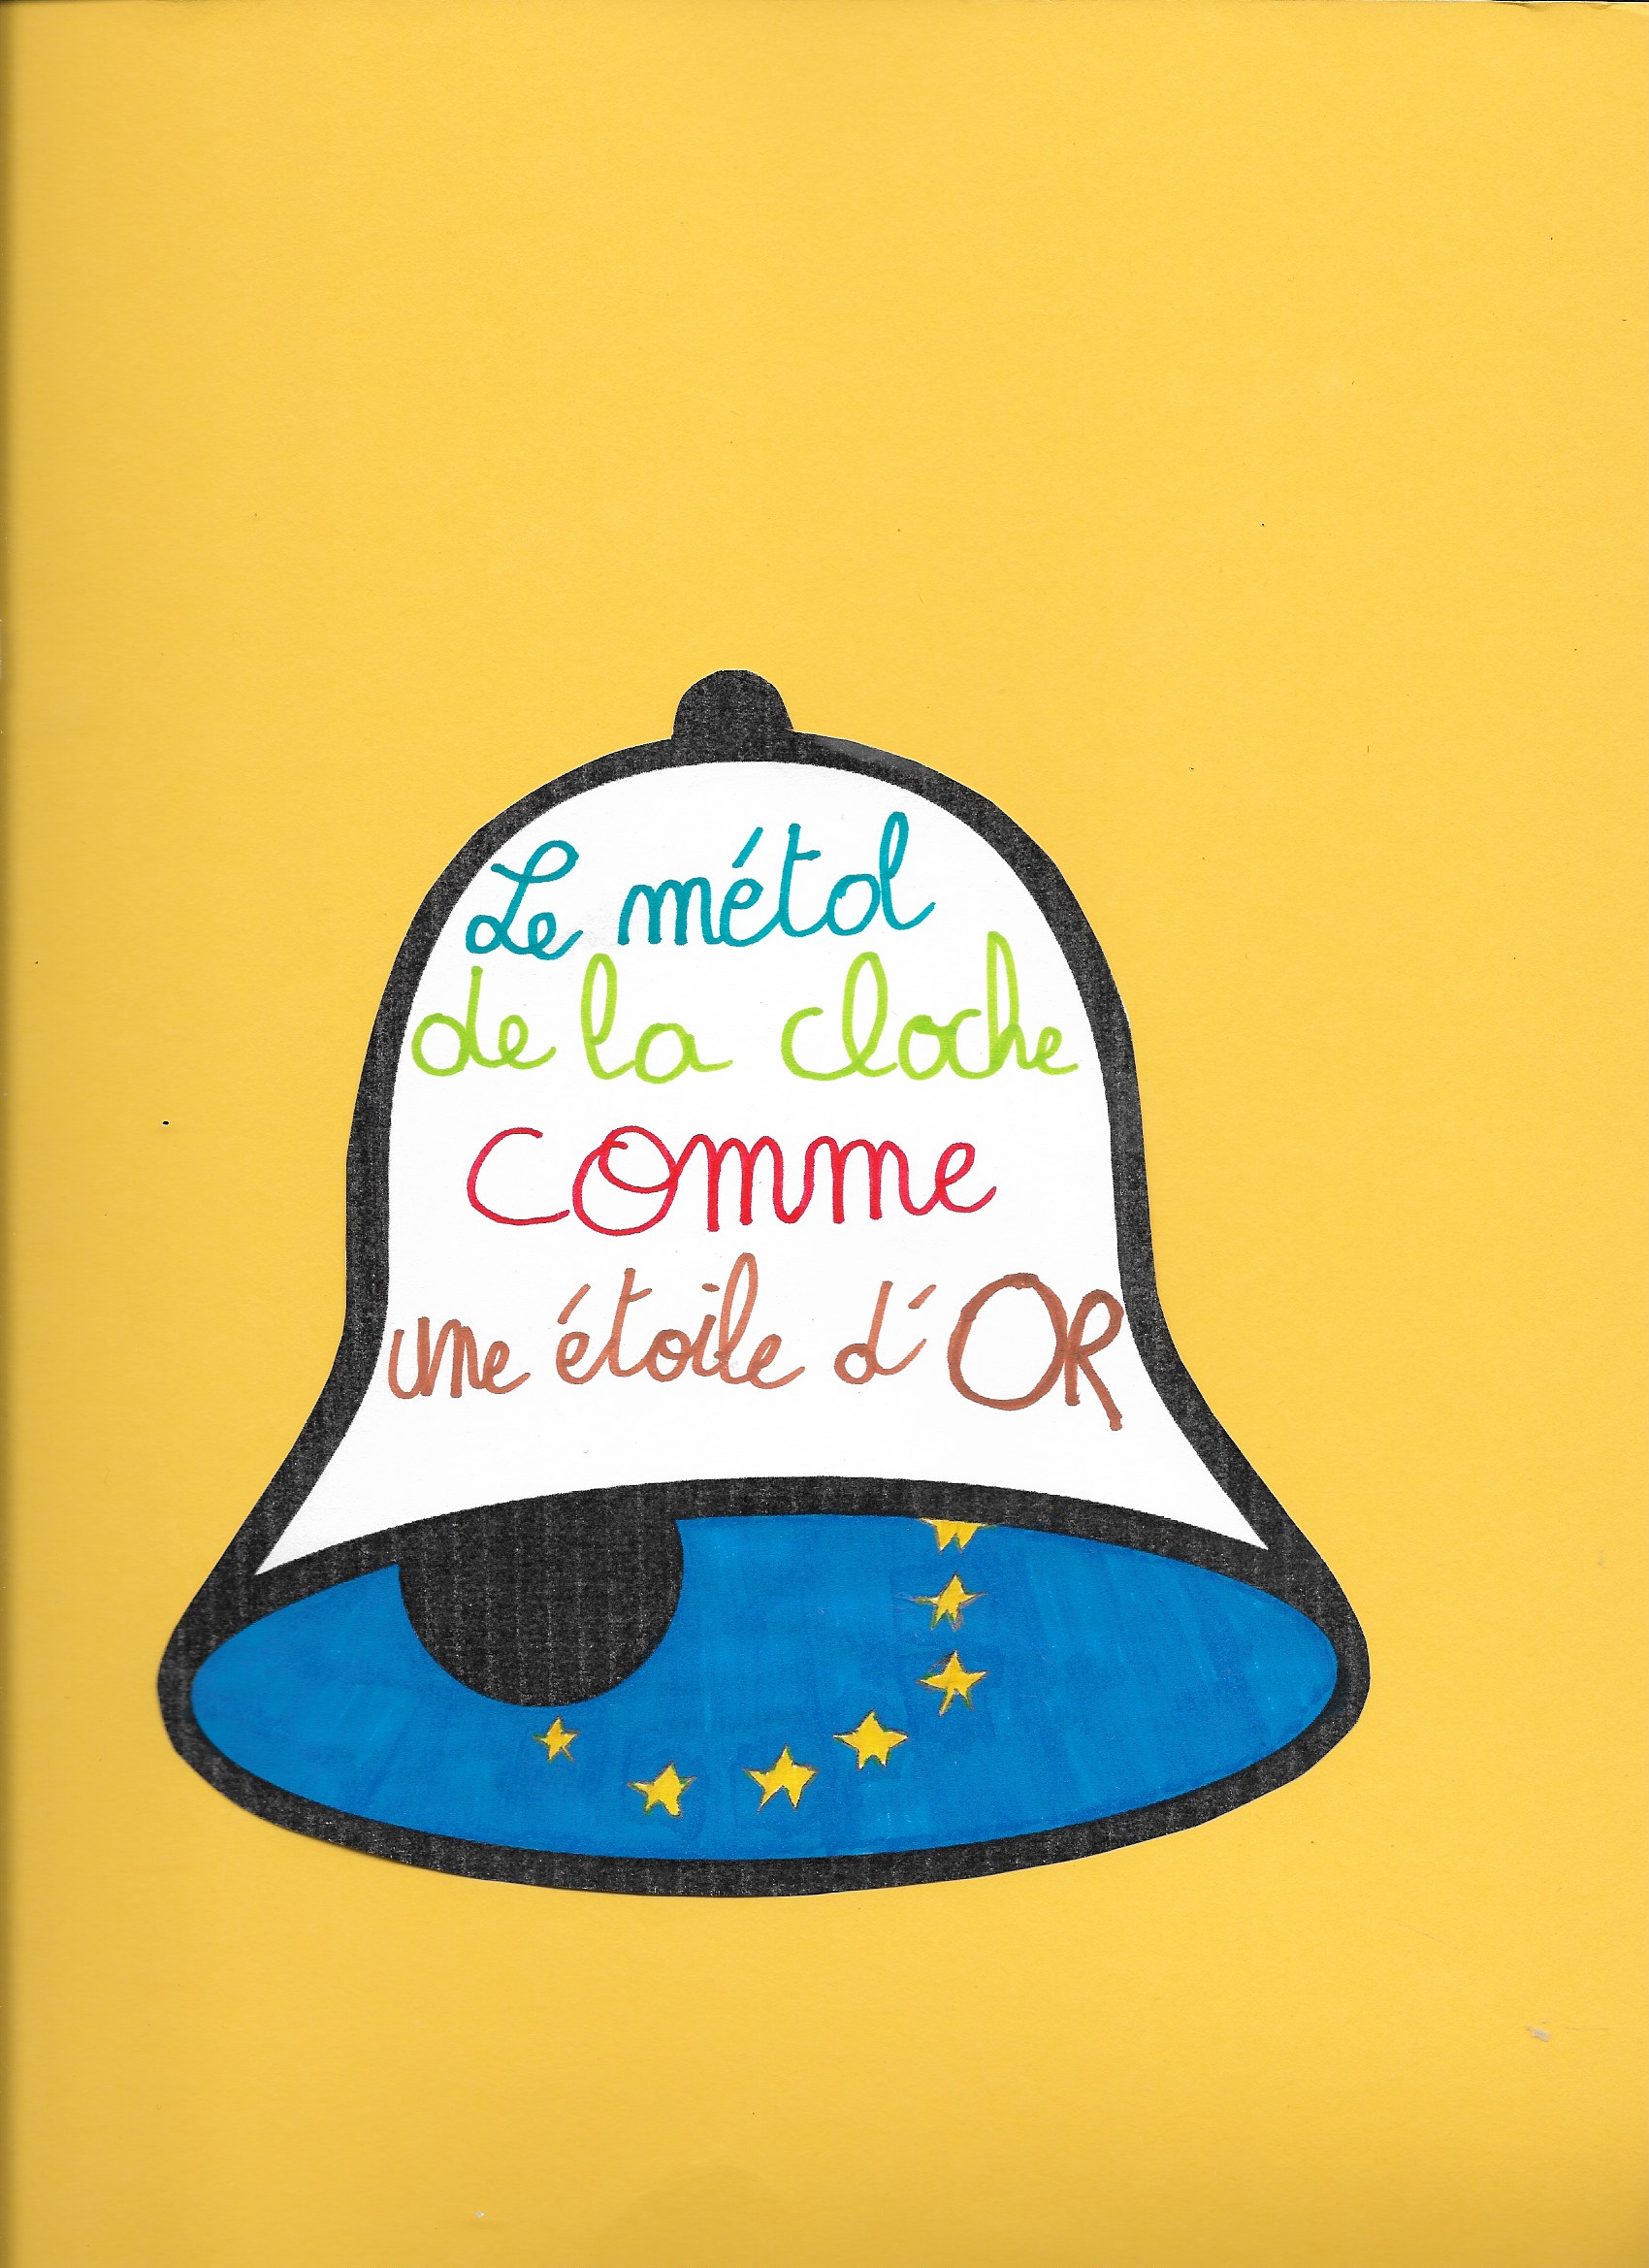 Le métal
de la cloche
comme
une étoile d'OR